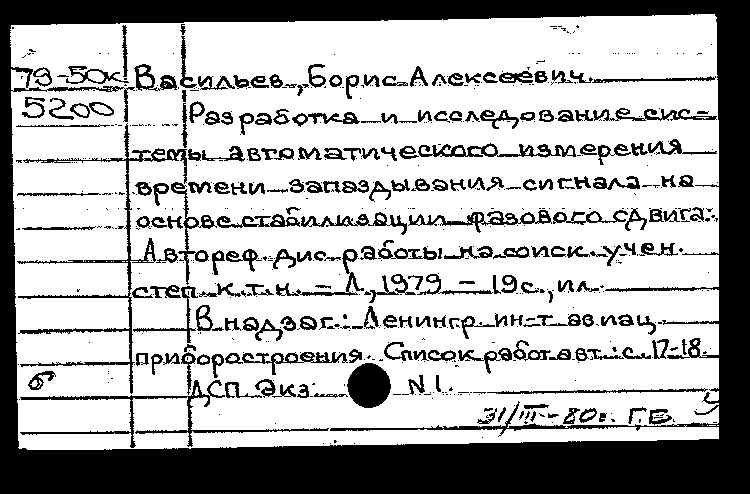 79-50к Васильев, Борис Алексеевич.
5200 Разработка и исследование сис-
темы автоматического измерения
времени запаздывания сигнала на
основе стабилизации фазового сдвига:
Автореф. дис. работы на соиск. учен.
степ. к.т.н. - Л., 1979 - 19 с., ил.
В надзаг.: Ленингр. ин-т авиац.
приборостроения. Список работ авт.: с. 17-18.
б ДСП. Экз. N 1.
31/III-80г. Г.Б.